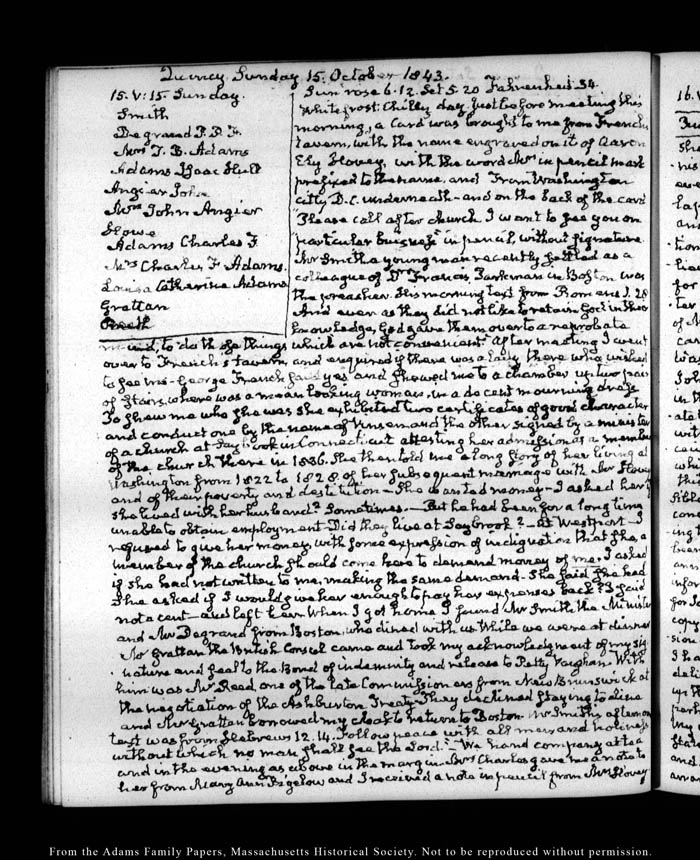 Quincy Sunday 15. October 1843.
15. V: 15. Sunday.
Smith
Degrand P. P. F.
Mrs T. B. Adams
Adams Isaac Hull
Angier John
Mrs John Angier
Howe
Adams Charles F.
Mrs Charles F. Adams.
Louisa Catherine Adams
Grattan
Sun rose 6.12. Set 5.20 Fahrenheit 34.
White frost. Chilly day. Just before meeting this
morning, a card was brought to me from French's
tavern, with the name engraved on it of Aaron
Ely Hovey, with the word Mrs in pencil mark
prefixed to the name, and From Washington
City D.C. underneath—and on the back of the card
"Please call after church. I want to see you on
particular business" in pencil, without signature.
Mr Smith a young man recently settled as a
colleague of Dr Francis Parkman in Boston was
the preacher. His morning text from Romans 1. 28
And even as they did not like to retain God in their
knowledge, God gave them over to a reprobate
mind, to do those things which are not convenient. After meeting I went
over to French's tavern, and enquired if there was a Lady there who wished
to see me—George French said yes and shewed me to a chamber up two pair
of stairs, where was a mean looking woman, in a decent mourning dress
To shew me who she was she exhibited two certificates of good character
and conduct one by the name of and the other signed by a minister
of a church at Saybrook in Connecticut attesting her admission as a member
of the church there in 1836. She then told me a long story of her living at
Washington from 1822 to 1828 of her subsequent marriage with Mr Hovey
and of their poverty and destitution—She wanted money—I asked her if
she lived with her husband? Sometimes.—But he had been for a long time
unable to obtain employment—Did they live at Saybrook?—At Westport—I
refused to give her money, with some expression of indignation that she, a
member of the church should come here to demand money of me. I asked
if she had not written to me, making the same demand. She said she had
She asked if I would give her enough to pay her expenses back? I said
not a cent—and left her. When I got home I found Mr Smith the Minister
and Mr Degrand from Boston, who dined with us. While we were at dinner
Mr Grattan the British Consul came and took my acknowledgment of my sig-
nature and seal to the Bond of indemnity and release to Petty Vaughan. With
him was Mr Reed, one of the late Commissioners from New Brunswick at
the negotiation of the Ashburton Treaty. They declined staying to dine
and Mr Grattan borrowed my cloak to return to Boston. Mr Smith's afternoon
text was from Hebrews 12. 14. Follow peace with all men and holiness
without which no man shall see the Lord."—We had company at tea
and in the evening as above in the margin. Mrs Charles gave me a note to
her from Mary Ann Bigelow and I received a note in pencil from Mrs Hovey
From the Adams Family Papers, Massachusetts Historical Society. Not to be reproduced without permission.